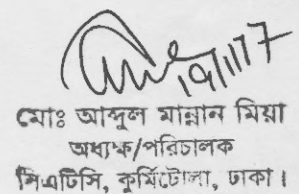 19/11/17
মোঃ আব্দুল মান্নান মিয়া
অধ্যক্ষ/পরিচালক
সিএটিসি, কুর্মিটোলা, ঢাকা।